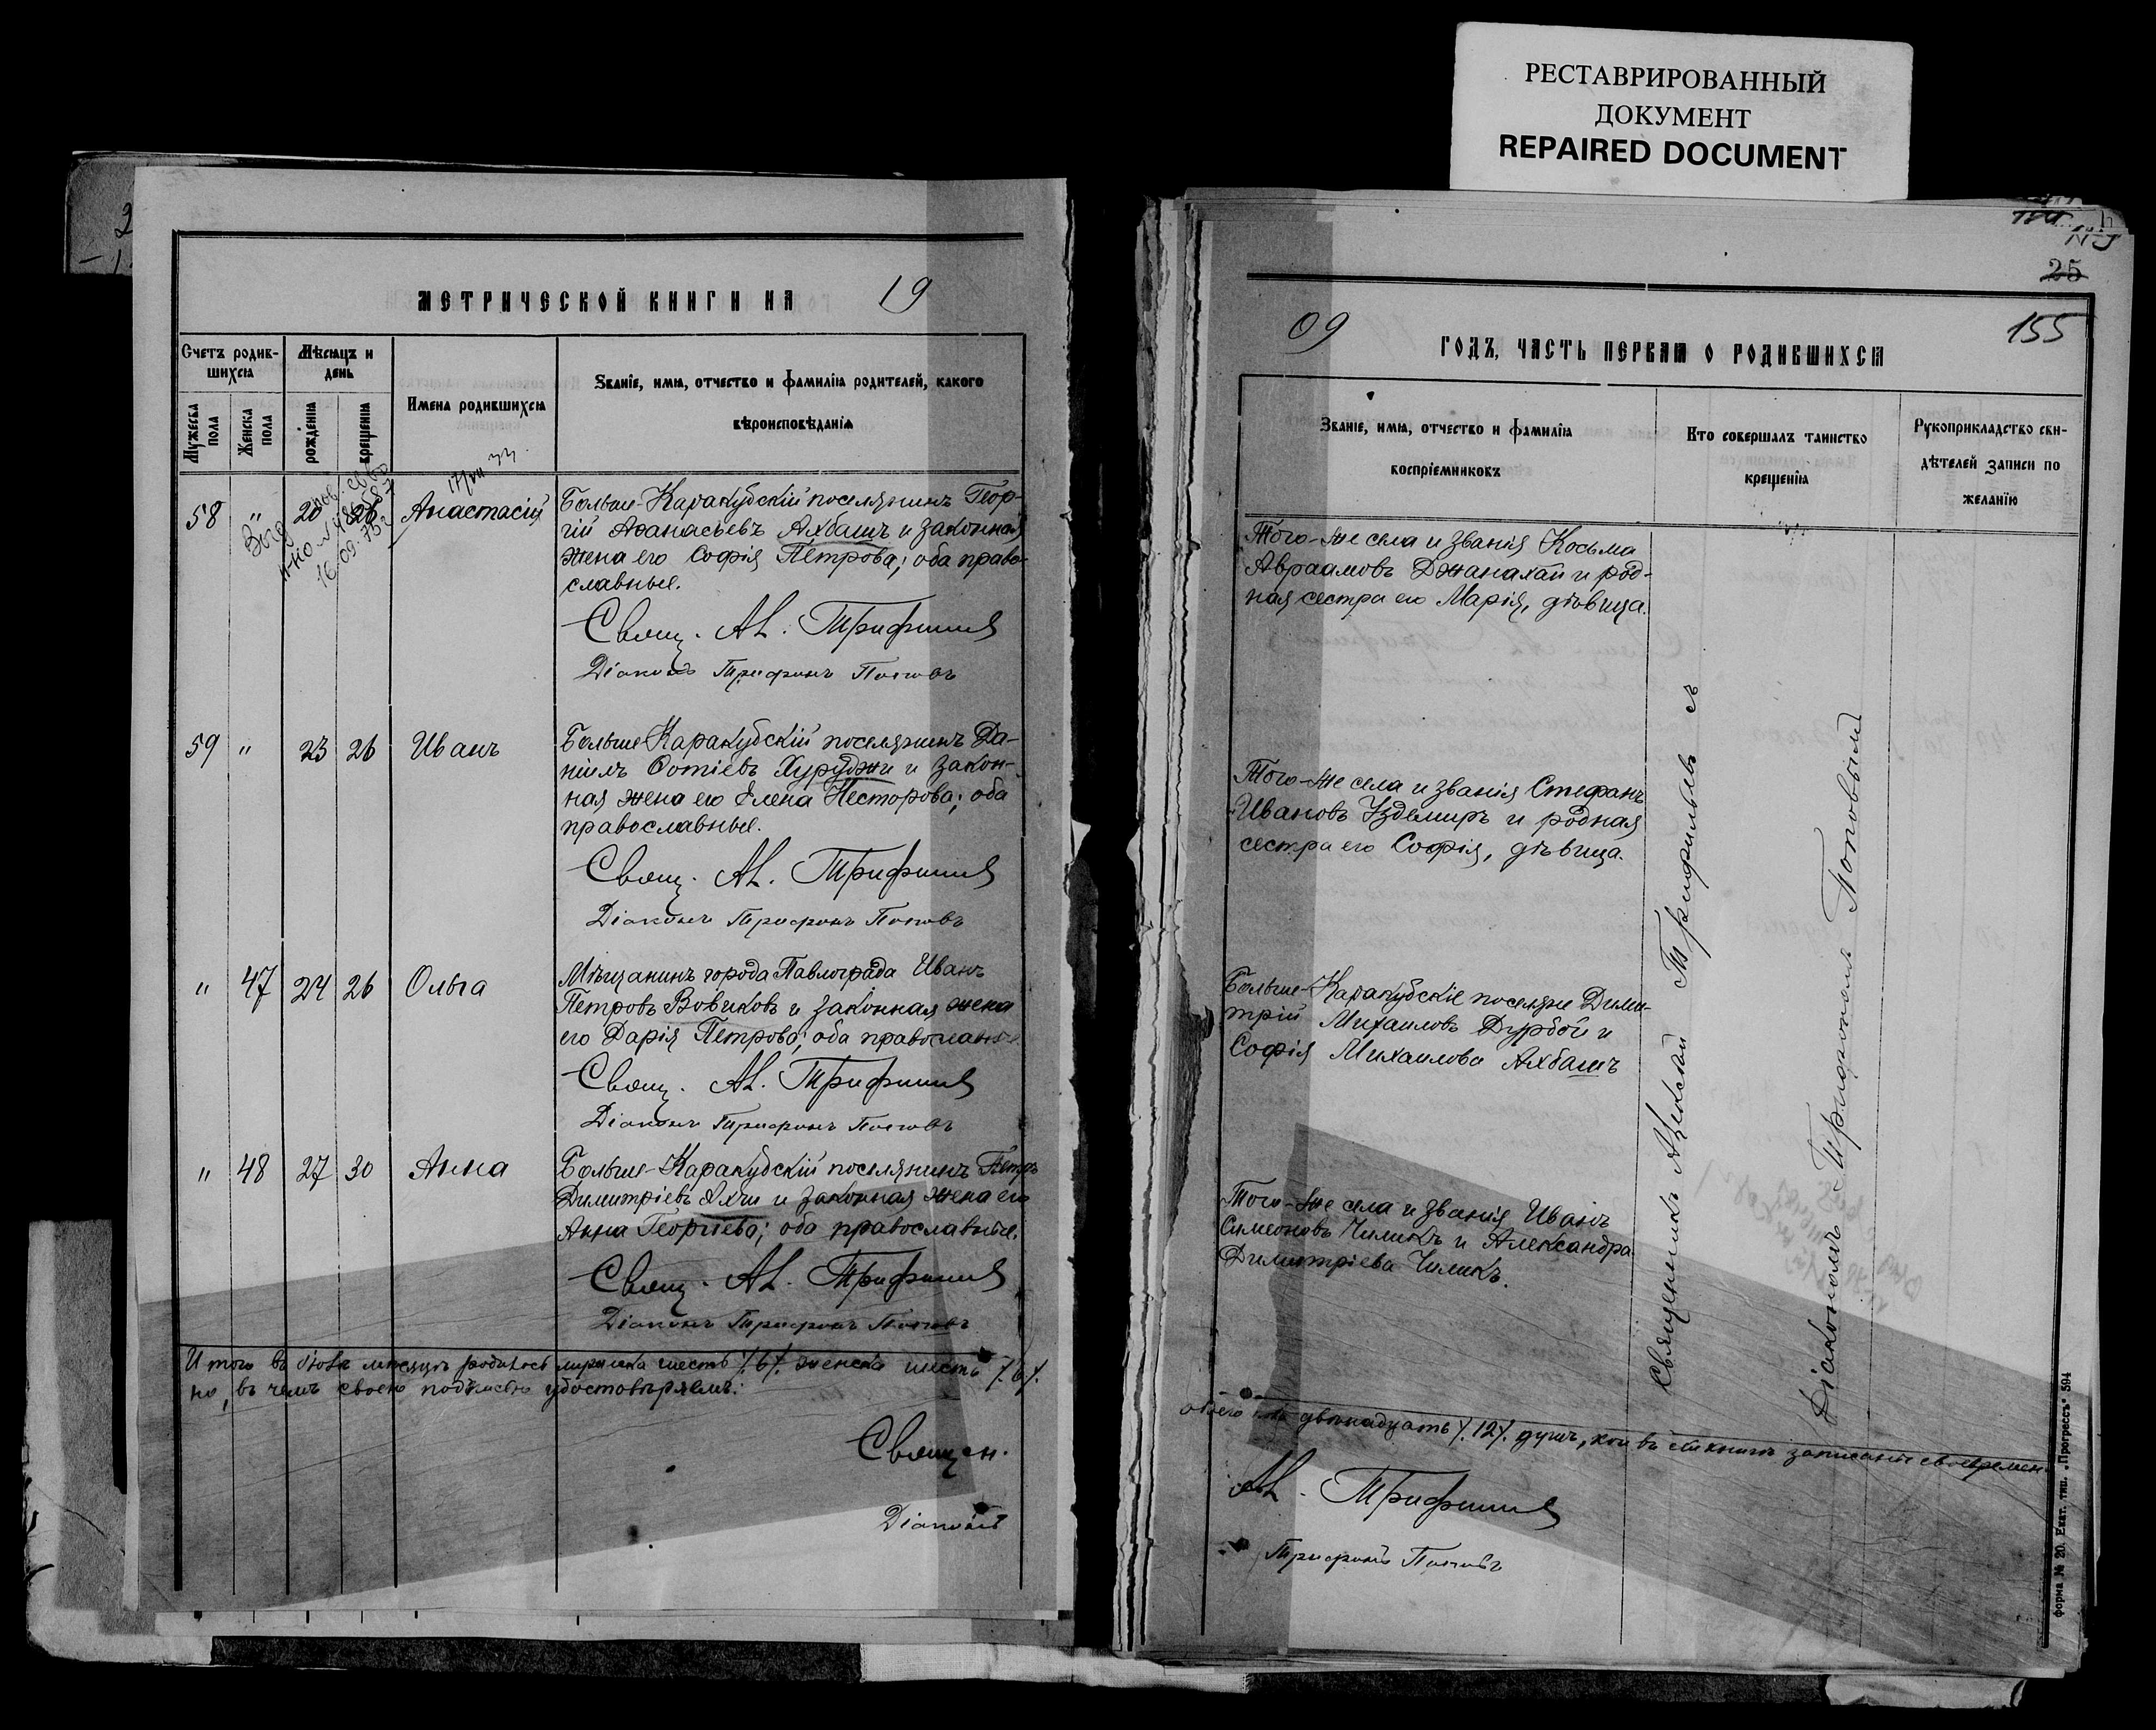 РЕСТАВРИРОВАННЫЙ
ДОКУМЕНТ
REPAIRED DOCUMENT
МЕТРИЧЕСКОЙ КНИГИ НА 19
Счетъ родив-
шихся
Мѣсяцъ и
день
Мужеска
пола
Женска
пола
рожденія
крещенія
Имена родившихся
Званіе, имя, отчество и фамилія родителей, какого
вѣроисповѣданія
58 " 20 26 Анастасій
Больше-Каракубскій поселянинъ Геор-
гій Аѳанасьевъ Ахбашъ и законная
жена его Софія Петрова; оба право-
славные.
Свящ. Ал. Трифильев
Діаконъ Трифонъ Поповъ
59 " 23 26 Иванъ
Больше-Каракубскій поселянинъ Да-
ніилъ Ѳотіевъ Хуруджи и закон-
ная жена его Елена Несторова; оба
православные.
Свящ. Ал. Трифильев
Діаконъ Трифонъ Поповъ
" 47 24 26 Ольга
Мѣщанинъ города Павлограда Иванъ
Петровъ Вовиковъ и законная жена
его Дарія Петрова; оба православные
Свящ. Ал. Трифильев
Діаконъ Трифонъ Поповъ
" 48 27 30 Анна
Больше-Каракубскій поселянинъ Петръ
Димитріевъ Яхчи и законная жена его
Анна Георгіева; оба православные.
Свящ. Ал. Трифильев
Діаконъ Трифонъ Поповъ
Итого въ мѣсяцѣ родилось мужеска шесть /.6/. женска шесть /.6/.
но, въ чемъ своею подписью удостовѣряемъ:
Священ.
Діаконъ
25
09
155
ГОДЪ, ЧАСТЬ ПЕРВАЯ О РОДИВШИХСЯ
Званіе, имя, отчество и фамилія
воспріемниковъ
Кто совершалъ таинство
крещенія
Рукоприкладство сви-
дѣтелей записи по
желанію
Того-же села и званія Косьма
Авраамовъ Джанахай и род-
ная сестра его Марія, дѣвица.
Того-же села и званія Стефанъ
Ивановъ Уздемиръ и родная
сестра его Софія, дѣвица.
Больше-Каракубскіе поселяне Дими-
трій Михаиловъ Дурбой и
Софія Михаилова Ахбашъ
Того-же села и званія Иванъ
Симеоновъ Чиликъ и Александра
Димитріева Чиликъ.
Священникъ Алексѣй Трифильевъ съ
Діакономъ Трифономъ Поповымъ
обоего пола двѣнадцать /.12/. душъ, кои въ сей книгѣ записаны своевремен-
Ал. Трифильев
Трифонъ Поповъ
форма № 20. Екат. тип. „Прогрессъ“ 594